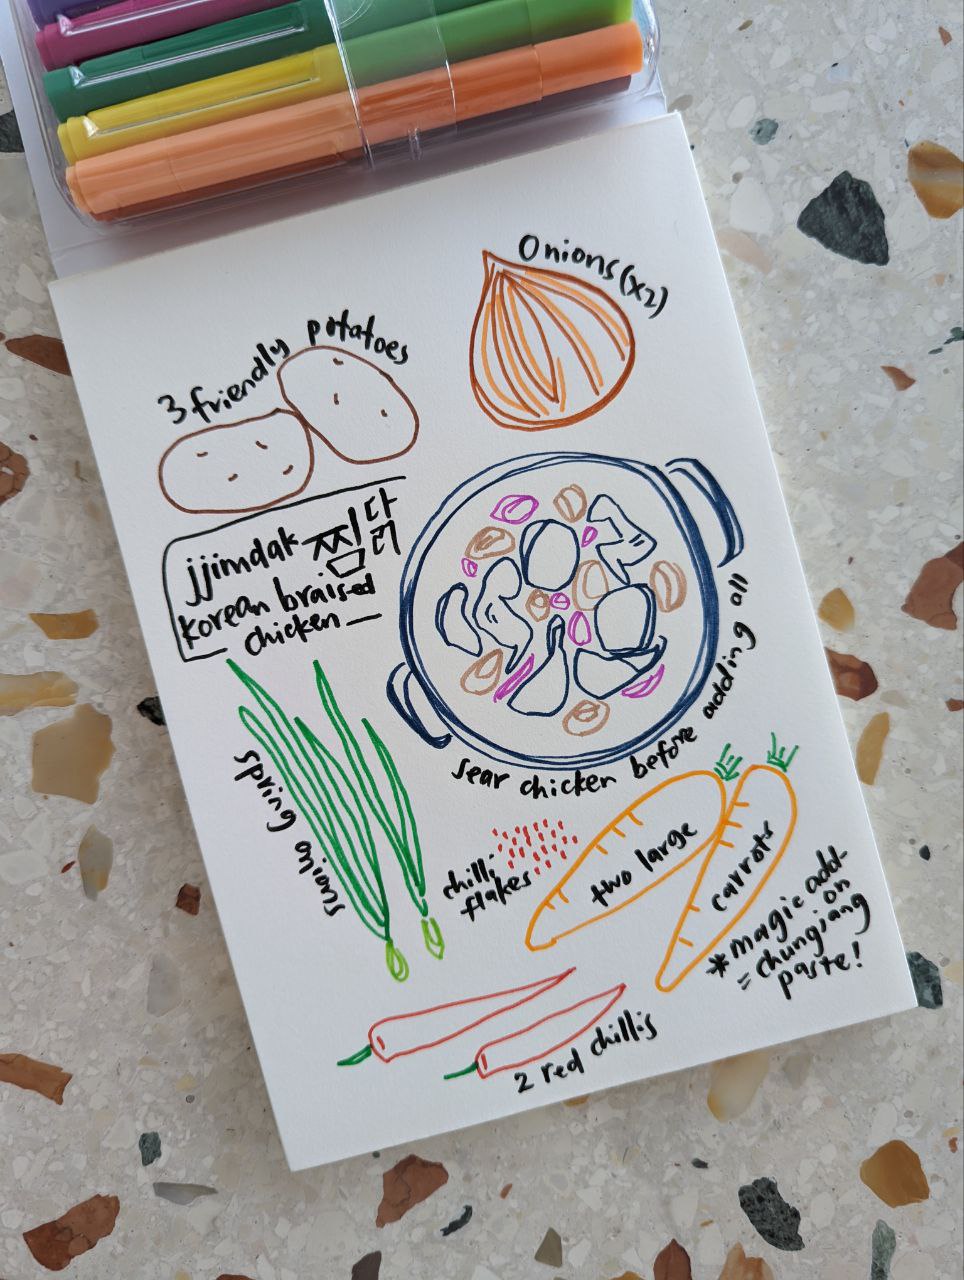 Onions (x2)
3 friendly potatoes
jjimdak 찜닭
korean braised
chicken
sear chicken before adding all
spring onions
chilli
flakes
two large
carrots
* magic add-
on
= chungjang
paste!
2 red chillis